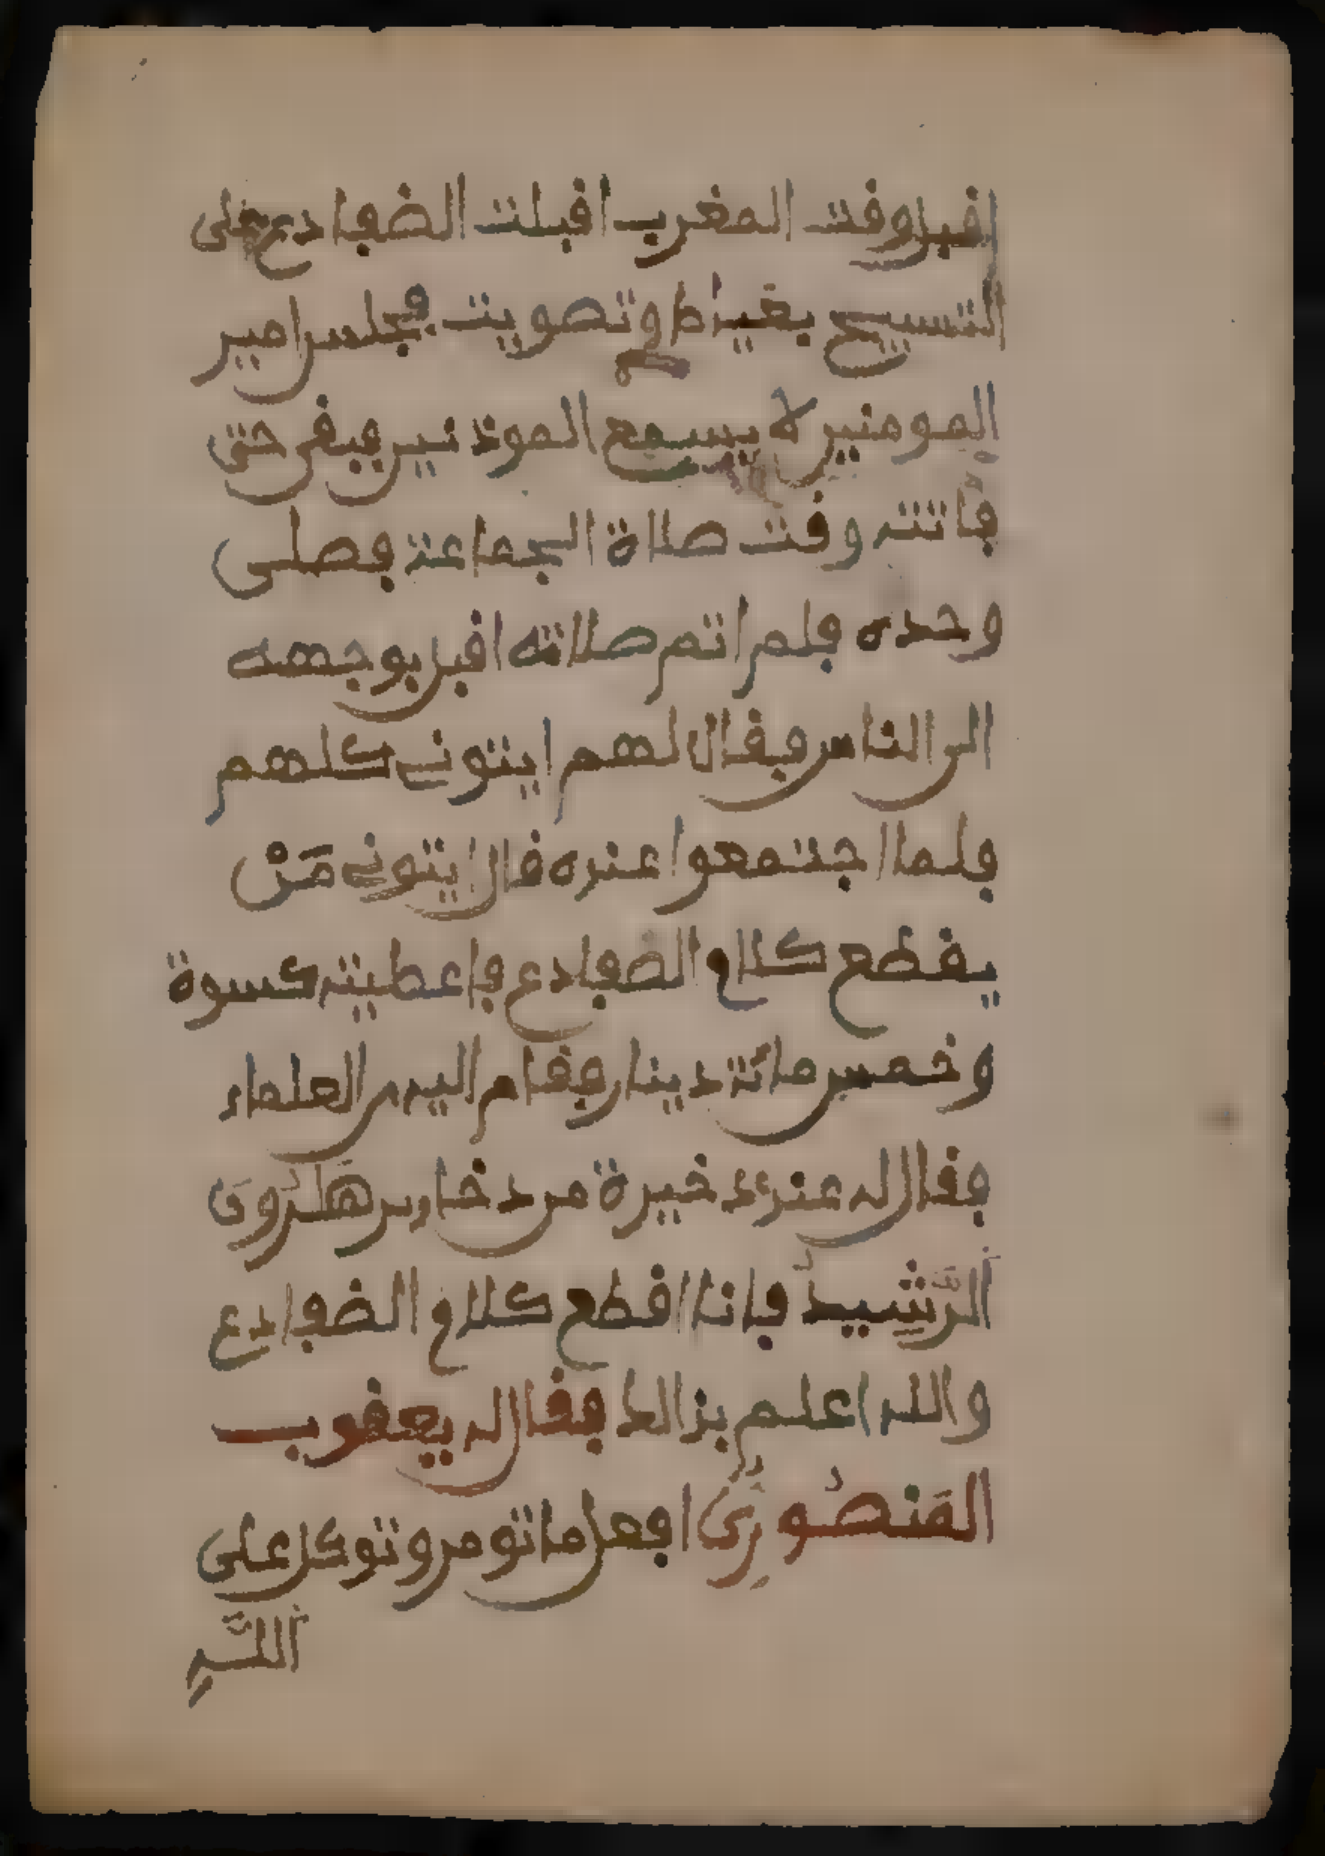 اقبل وقت المغرب اقبلت الضفادع على
التسبيح بعياط وتصويت فجلس امير
المومنين لا يسمع الموذنين فبقى حتى
فاتته وقت صلاة الجماعة فصلى
وحده فلم اتم صلاته اقبل بوجهه
الى الناس فقال لهم ايتوني كلهم
فلما اجتمعوا عنده قال ايتوني مَنْ
يقطع كلام الضفادع فاعطيته كسوة
وخمس مائة دينار فقام اليه العلماء
فقال له عند ذخيرة من دخاير هَارُونَ
الرَّشِيدُ فانا اقطع كلام الضفادع
والله اعلم بذالك فقال له يعقوب
المَنصُورِيُّ افعل ما تومر وتوكل على
اللَّهِ